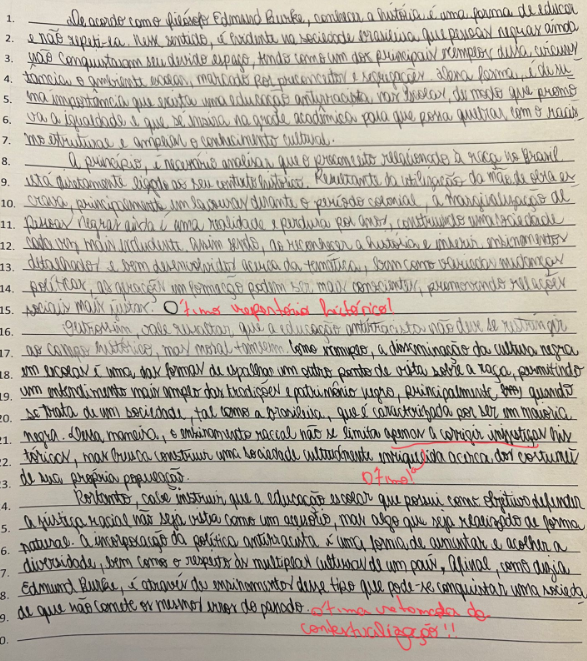 1. De acordo com o filósofo Edmund Burke, conhecer a história é uma forma de educar
2. e não repeti-la. Nesse sentido, é evidente na sociedade brasileira que pessoas negras ainda
3. não conquistaram seu devido espaço, tendo como um dos principais exemplos dessa circuns
4. tância o ambiente escolar, marcado por preconceitos e segregações. Dessa forma, é de su
5. ma importância que exista uma educação antirracista nas escolas, de modo que promo
6. va a igualdade e que se insira na grade acadêmica para que possa quebrar com o racis
7. mo estrutural e ampliar o conhecimento cultural.
8. A princípio, é necessário analisar que o preconceito relacionado à raça no Brasil
9. está diretamente ligado ao seu contexto histórico. Resultante da utilização da mão de obra es
10. crava, principalmente em lavouras durante o período colonial, a marginalização de
11. pessoas negras ainda é uma realidade e perdura por anos, construindo uma sociedade
12. cada vez mais excludente. Assim sendo, ao reconhecer a história e inserir ensinamentos
13. detalhados e bem desenvolvidos acerca da temática, bem como variadas mudanças
14. políticas, as gerações em formação podem ser mais conscientes, promovendo relações
15. sociais mais justas. Ótimo repertório histórico!
16. Outrossim, vale ressaltar que a educação antirracista não deve se restringir
17. ao campo histórico, mas moral também. Como exemplo, a disseminação da cultura negra
18. em escolas é uma das formas de espalhar um outro ponto de vista sobre a raça, permitindo
19. um entendimento mais amplo das tradições e patrimônio negro, principalmente quando
20. se trata de um sociedade, tal como a brasileira, que é caracterizada por ser em maioria
21. negra. Dessa maneira, o ensinamento racial não se limita apenas a corrigir injustiças his
22. tóricas, mas busca construir uma sociedade culturalmente enriquecida acerca dos costumes
3. de sua própria população. Ótimo!
4. Portanto, cabe instruir que a educação escolar que possui como objetivo defender
5. a justiça racial não seja vista como um aquisito, mas algo que seja realizado de forma
6. natural. A incorporação da política antirracista é uma forma de aumentar e acolher a
7. diversidade, bem como o respeito às multiplas culturas de um país, afinal, como dizia
8. Edmund Burke, é através de ensinamentos desse tipo que pode-se conquistar uma socieda
9. de que não comete os mesmos erros do passado. Ótima retomada de
0. contextualização!!